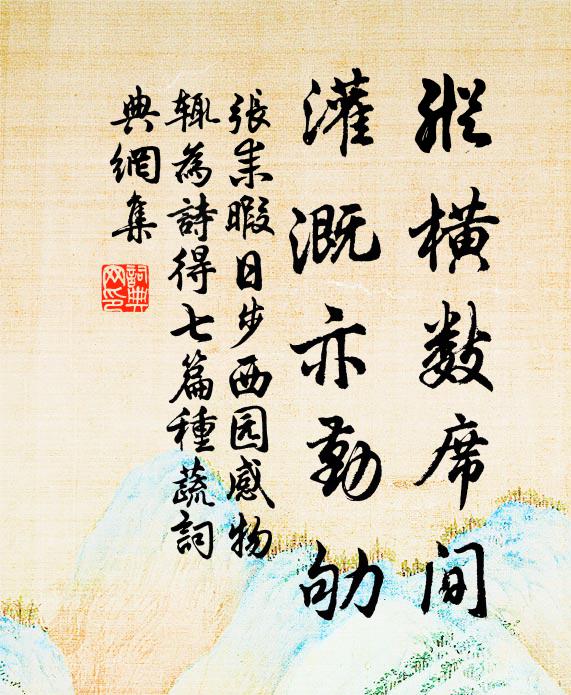 縱橫數席间
灌溉亦勤劬
張耒暇日步西园感物
輒為詩得七篇種蔬詞
典網集
詞典网印